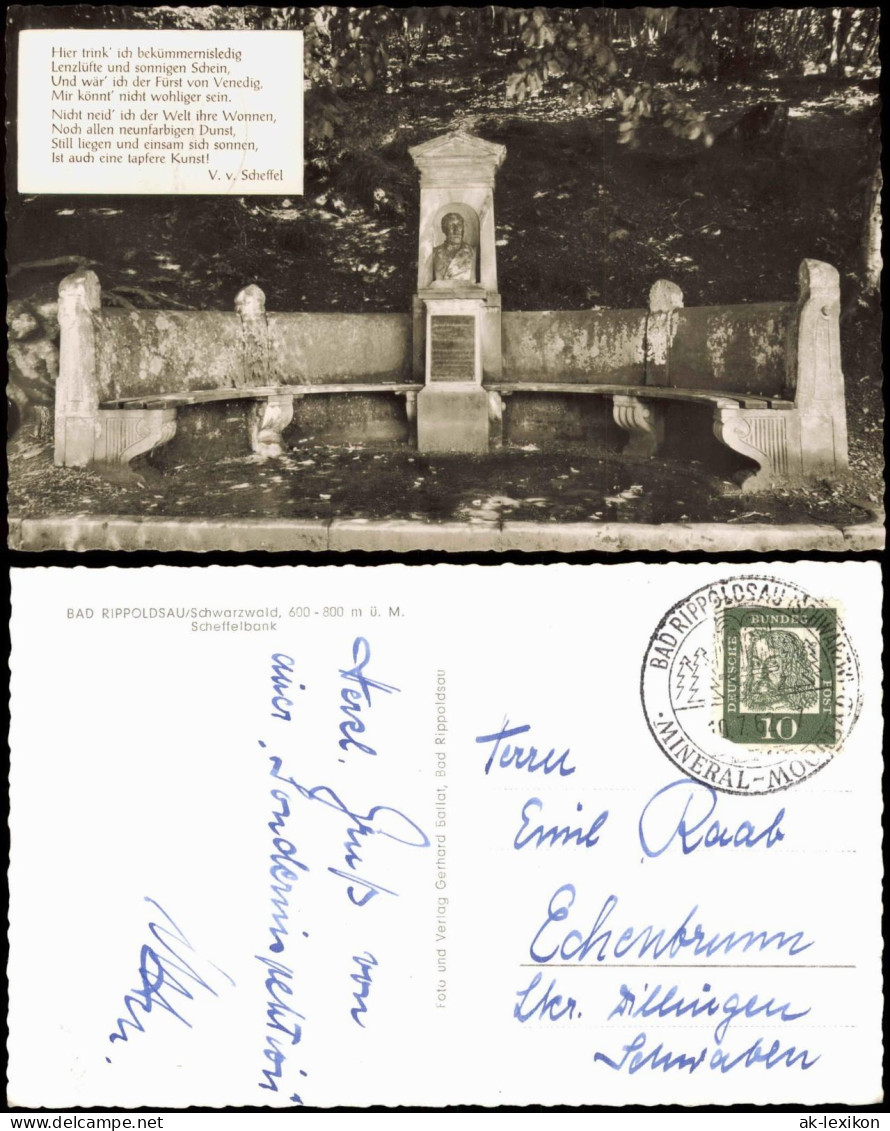 Hier trink' ich bekümmernisledig
Lenzlüfte und sonnigen Schein,
Und wär' ich der Fürst von Venedig,
Mir könnt' nicht wohliger sein.
Nicht neid' ich der Welt ihre Wonnen,
Noch allen neunfarbigen Dunst,
Still liegen und einsam sich sonnen,
Ist auch eine tapfere Kunst!
V. v. Scheffel
BAD RIPPOLDSAU/Schwarzwald, 600-800 m ü. M.
Scheffelbank
Herzl. Gruß von
einer „Sonderinspektion"
Foto und Verlag Gerhard Ballat, Bad Rippoldsau
BAD RIPPOLDSAU (SCHWARZW)
MINERAL-MOORBAD
DEUTSCHE
BUNDES
POST
10
Herrn
Emil Raab
Echenbrunn
Lkr. Dillingen
Schwaben
ak-lexikon